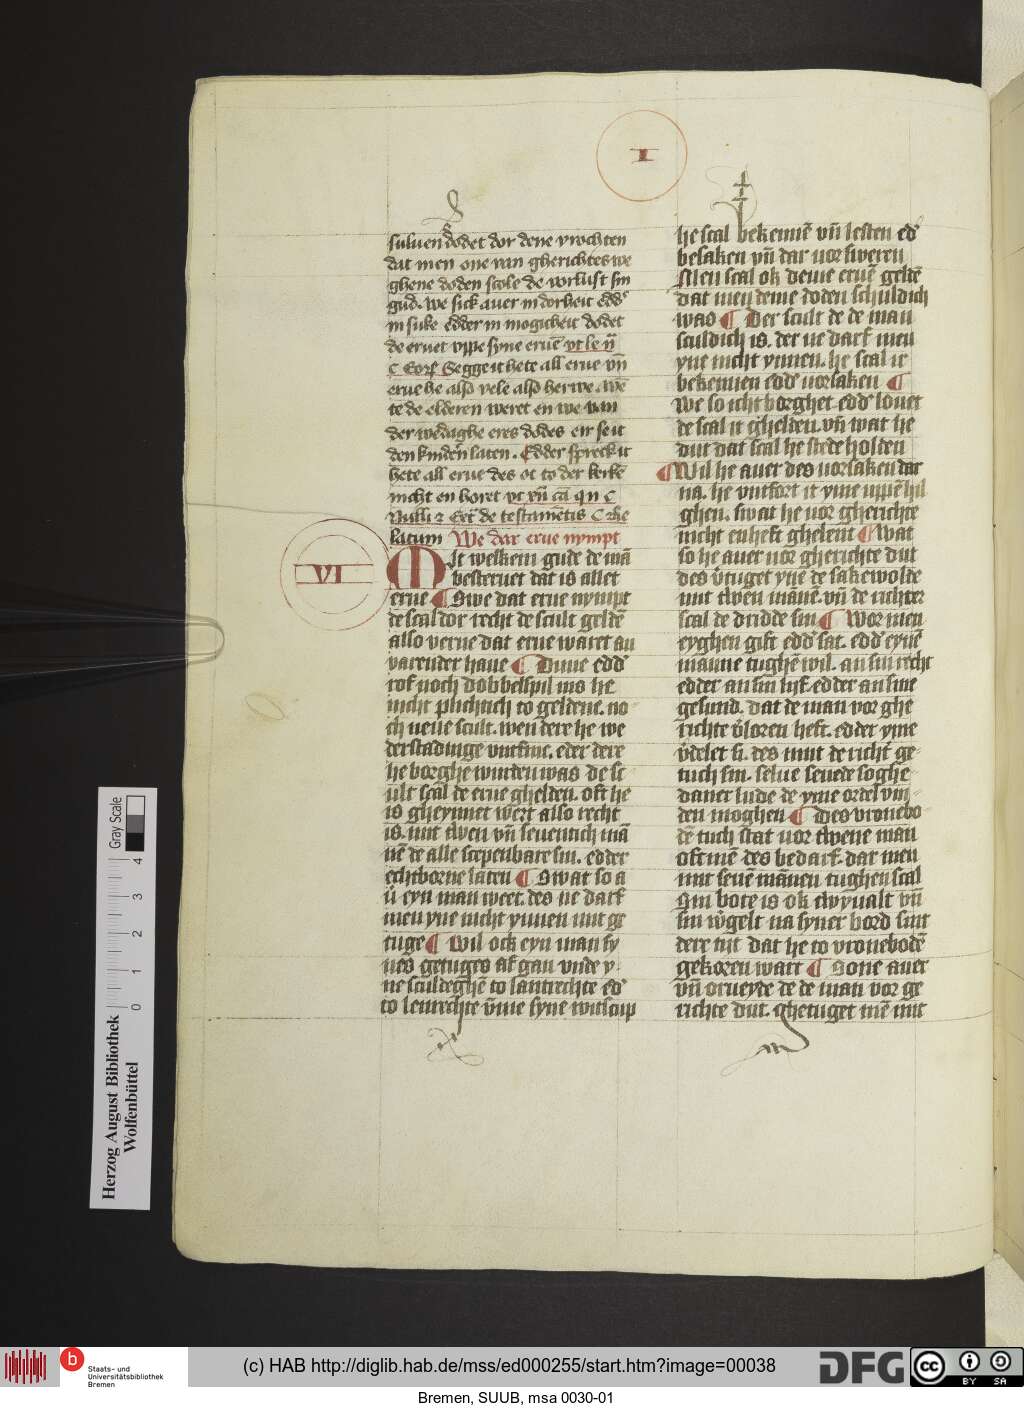 I
suluen dodet dor dene vrochten
dat men one van gherichtes we
ghene doden scole de vorlust sin
gud. we sick auer in dorheit edder
in suke edder in mogicheit dodet
de eruet vppe syne eruē vt le
C Seggeit hete all erue vn̄
erue he also vele also herwe. wē
te de elderen weret en we van
der wedaghe eres dodes eir se it
den kinderē laten. Edder spreck it
hete all erue des ot to der kerkē
nicht en horet vt
de testamētis C
latum We dar erue nympt
VI
Mit welkem gude de mā
besteruet dat is allet
erue ¶ Swe dat erue nympt
de scal dor recht de scult geldē
also verne dat erue waret an
varender haue ¶ Duue edd'
rof noch dobbelspil ms he
nicht plichtich to geldene. no
ch nene scult. wen dere he we
derstadinge untfinc. eder dere
he borghe wurden was de sc
ult scal de erue ghelden. oft he
is gheynnet wert also recht
is. mit twen vn̄ seuentich mā
nē de alle scepenbare sin. edder
echtborne laten ¶ Swat so a
u' eyn man weet. des ne darf
men yne nicht ynnen mit ge
tuge ¶ Wil ock eyn man sy
nes getuges af gan vnde y
ne sculdeghē to lantrechte ed'
to lenrechte vm̄e syne witscup
he scal bekennē vn̄ lesten ed'
besaken vn̄ dar uor sweren
Men scal ok deme eruē geldē
dat men deme doden schuldich
was ¶ Der scult de de man
sculdich is. der ne darf men
yne nicht ynnen. he scal it
bekennen edd' uorsaken ¶
We so icht borghet edd' louet
de scal it ghelden. vn̄ wat he
dut dat scal he stede holden
¶ Wil he auer des uorsaken dar
na. he untfort it yme uppē hil
ghen. swat he uor gherichte
nicht en heft ghelent ¶ Wat
so he auer uor gherichte dut
des v'tuget yne de sakewolde
mit twen manē. vn̄ de richter
scal de dridde sin ¶ Wor men
eyghen gift edd' sat. edd' eynē
manne tughē wil. an sin recht
edder an sin lyf. edder an sine
gesund. dat de man vor ghe
richte v'loren heft. edder yme
v'delet si. des mut de richt' ge
tuch sin. selue seuede soghe
daner lude de yme ordel vin
den moghen ¶ Des vronebo
dē tuch stat uor twene man
oft mē des bedarf. dar men
mit seuē mānen tughen scal
Sin bote is ok twyualt vn̄
sin w'gelt na syner bord sint
dere tijt dat he to vronebodē
gekoren wart ¶ Sone auer
vn̄ orueyde de de man vor ge
richte dut. ghetuget mē mit
Herzog August Bibliothek
Wolfenbüttel
Gray Scale
0 1 2 3 4
Staats- und
Universitätsbibliothek
Bremen
(c) HAB http://diglib.hab.de/mss/ed000255/start.htm?image=00038
DFG
cc BY SA
Bremen, SUUB, msa 0030-01